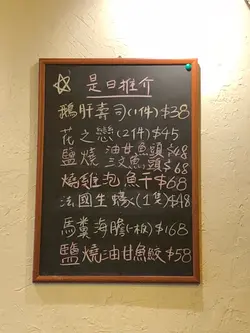 ☆ 是日推介
鵝肝壽司(1件)$38
花之戀(2件)$45
鹽燒 油甘魚頭$68
三文魚頭$68
燒雞泡魚干$68
法國生蠔(1隻)$48
馬糞海膽(一板)$168
鹽燒油甘魚鮫$58